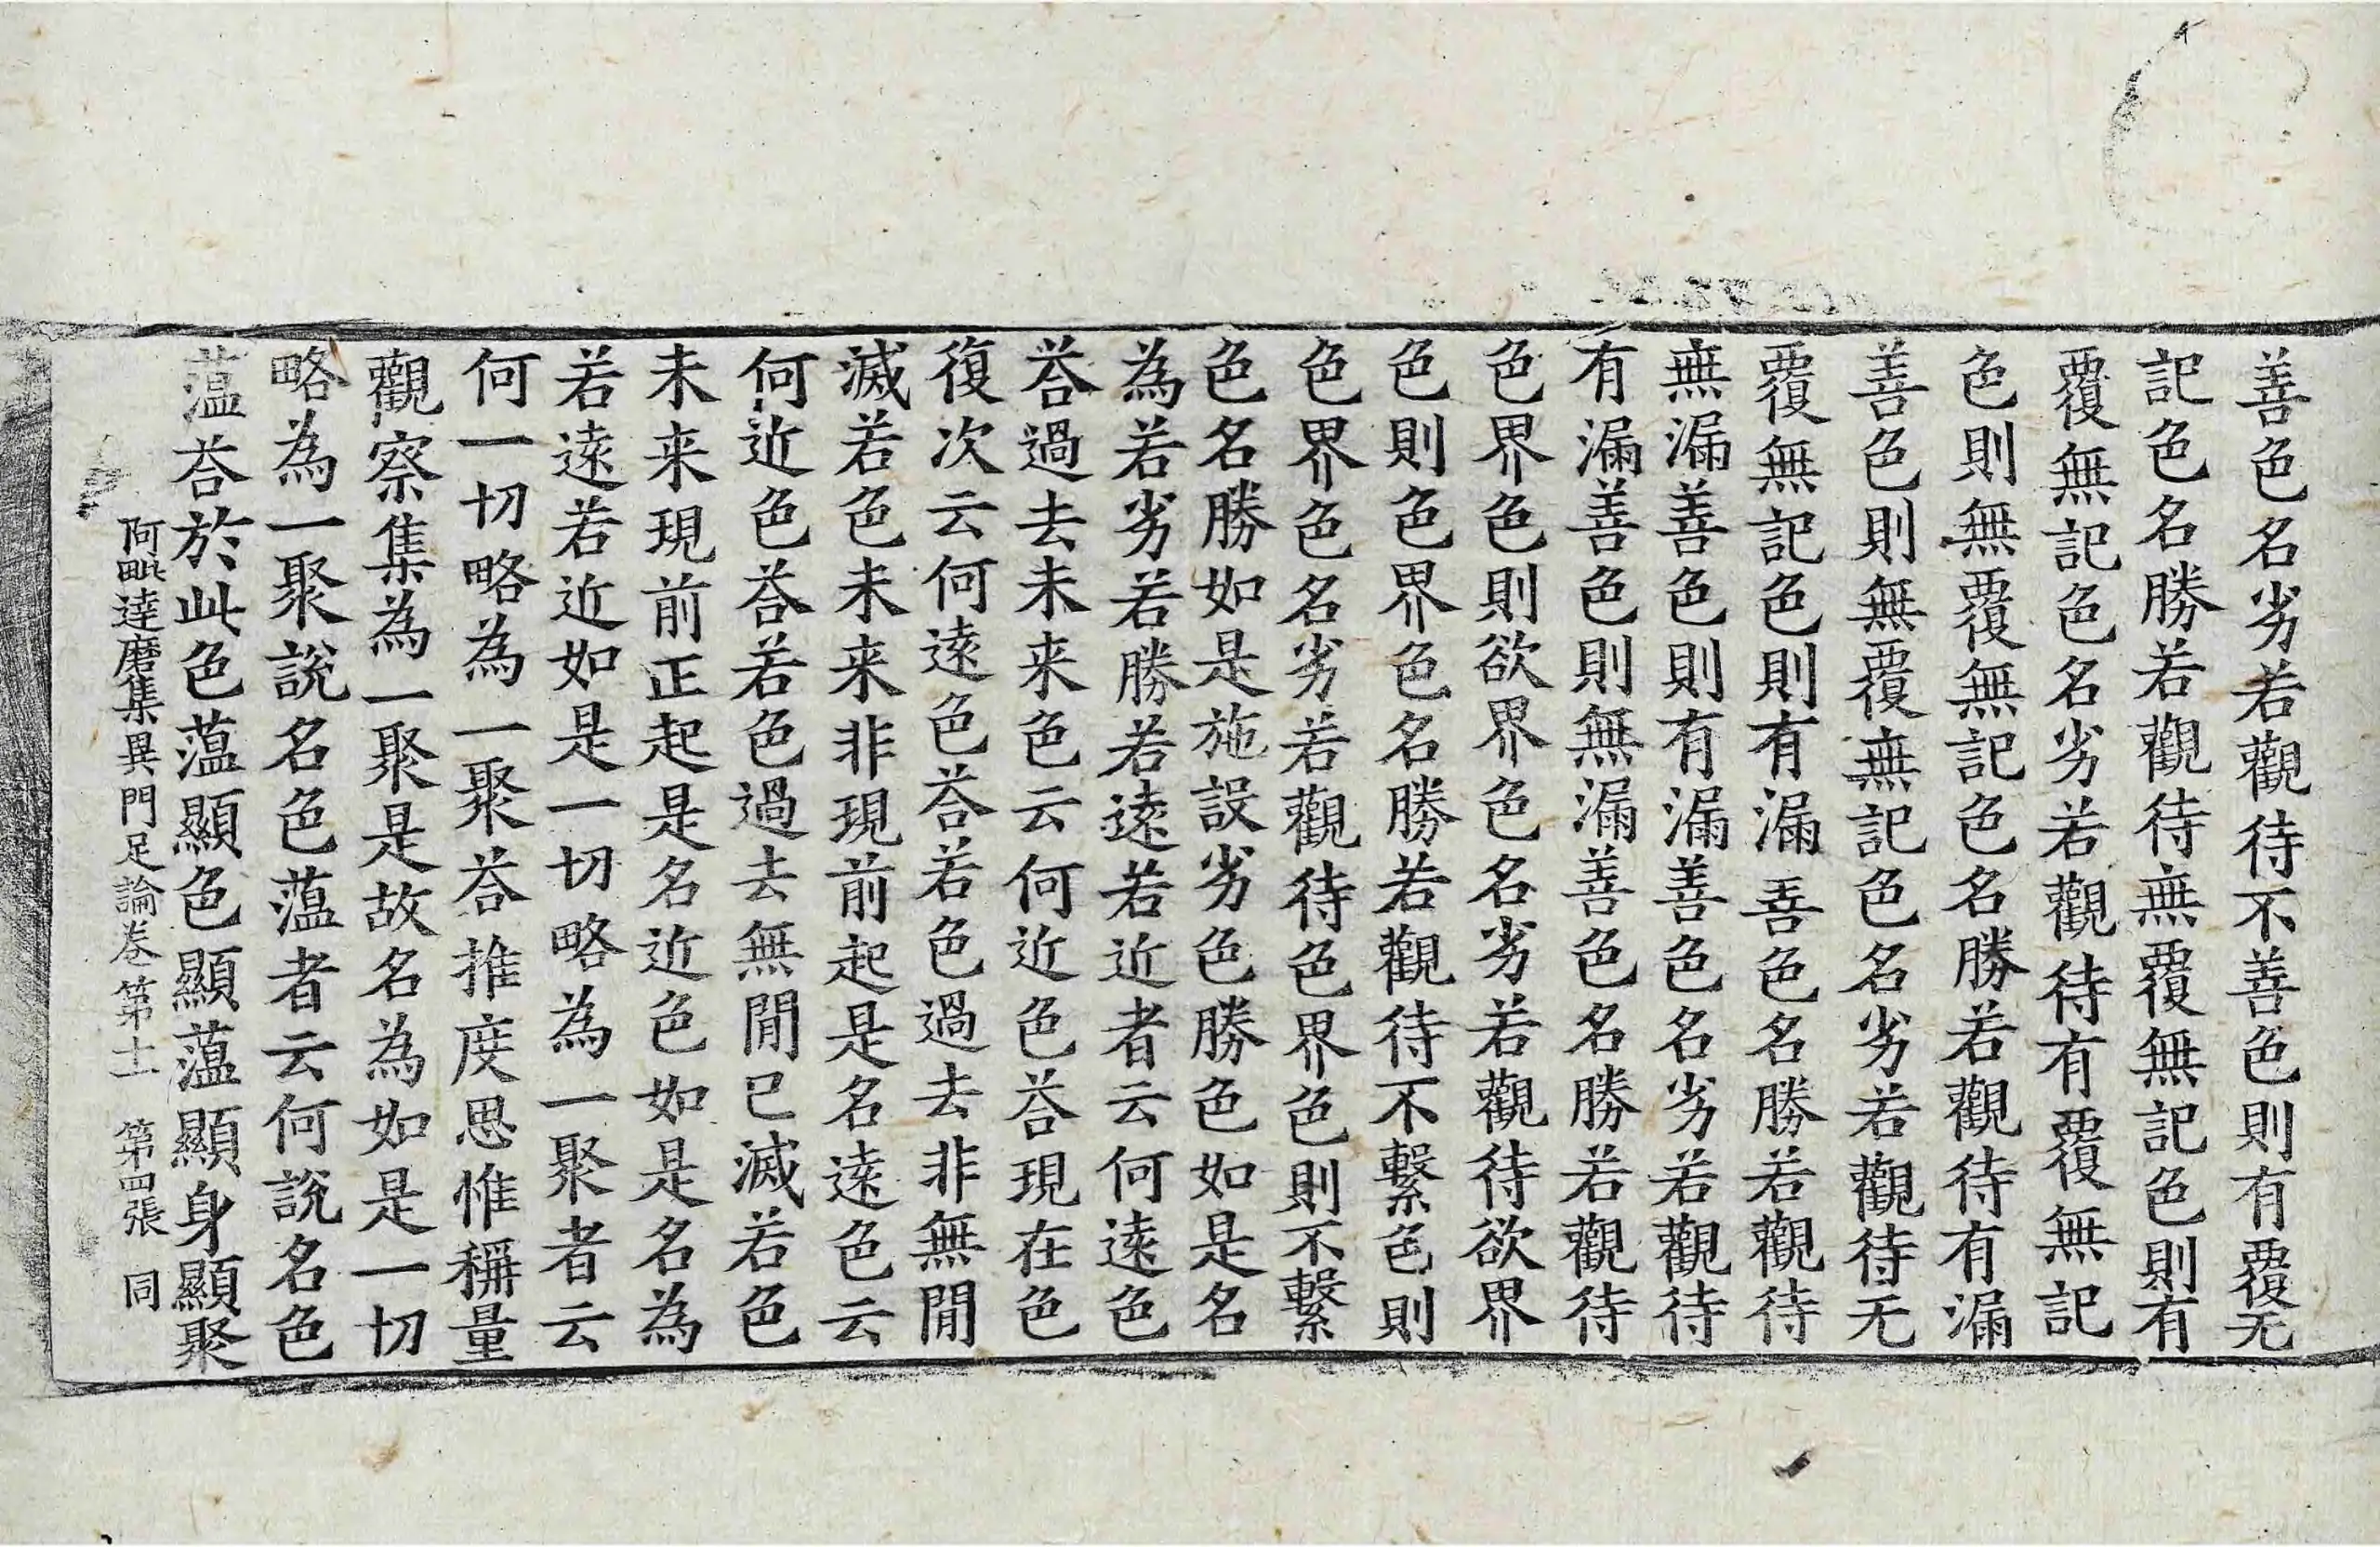 善色名劣若觀待不善色則有覆无
記色名勝若觀待無覆無記色則有
覆無記色名劣若觀待有覆無記
色則無覆無記色名勝若觀待有漏
善色則無覆無記色名劣若觀待无
覆無記色則有漏善色名勝若觀待
無漏善色則有漏善色名劣若觀待
有漏善色則無漏善色名勝若觀待
色界色則欲界色名劣若觀待欲界
色則色界色名勝若觀待不繫色則
色界色名劣若觀待色界色則不繫
色名勝如是施設劣色勝色如是名
為若劣若勝若遠若近者云何遠色
荅過去未来色云何近色荅現在色
復次云何遠色荅若色過去非無閒
滅若色未来非現前起是名遠色云
何近色荅若色過去無閒已滅若色
未来現前正起是名近色如是名為
若遠若近如是一切略為一聚者云
何一切略為一聚荅推度思惟稱量
觀察集為一聚是故名為如是一切
略為一聚說名色薀者云何說名色
薀荅於此色薀顯色顯薀顯身顯聚
阿毗達磨集異門足論卷第十一 第四張 同